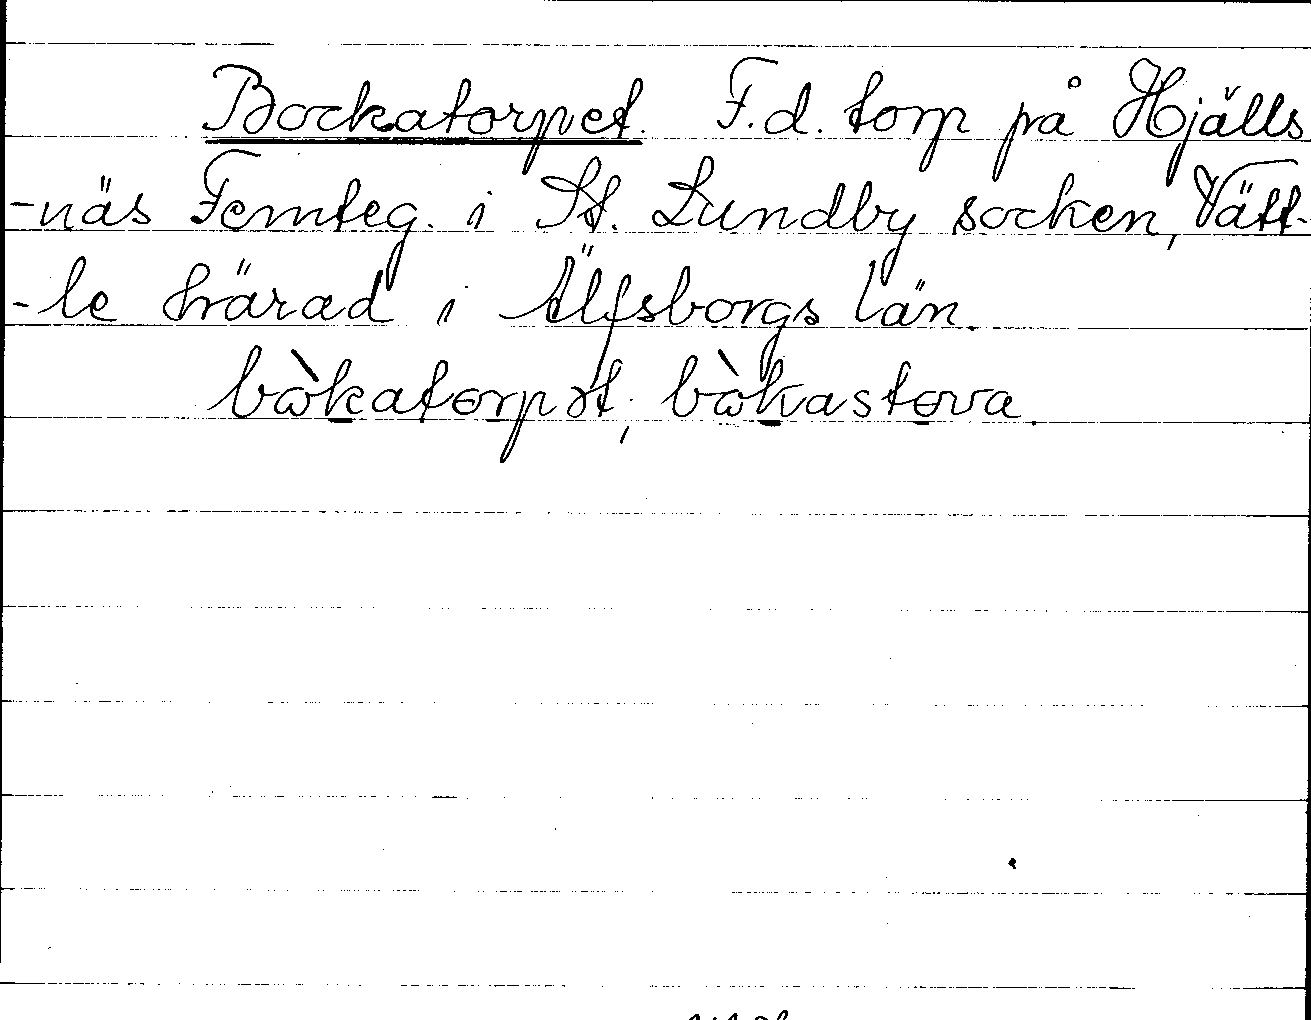 Bockatorpet. F.d. torp på Hjälls
-näs Femteg. i St. Lundby socken, Vätt-
-le härad i Älfsborgs län.
bὼkatorpət, bὼkastova.